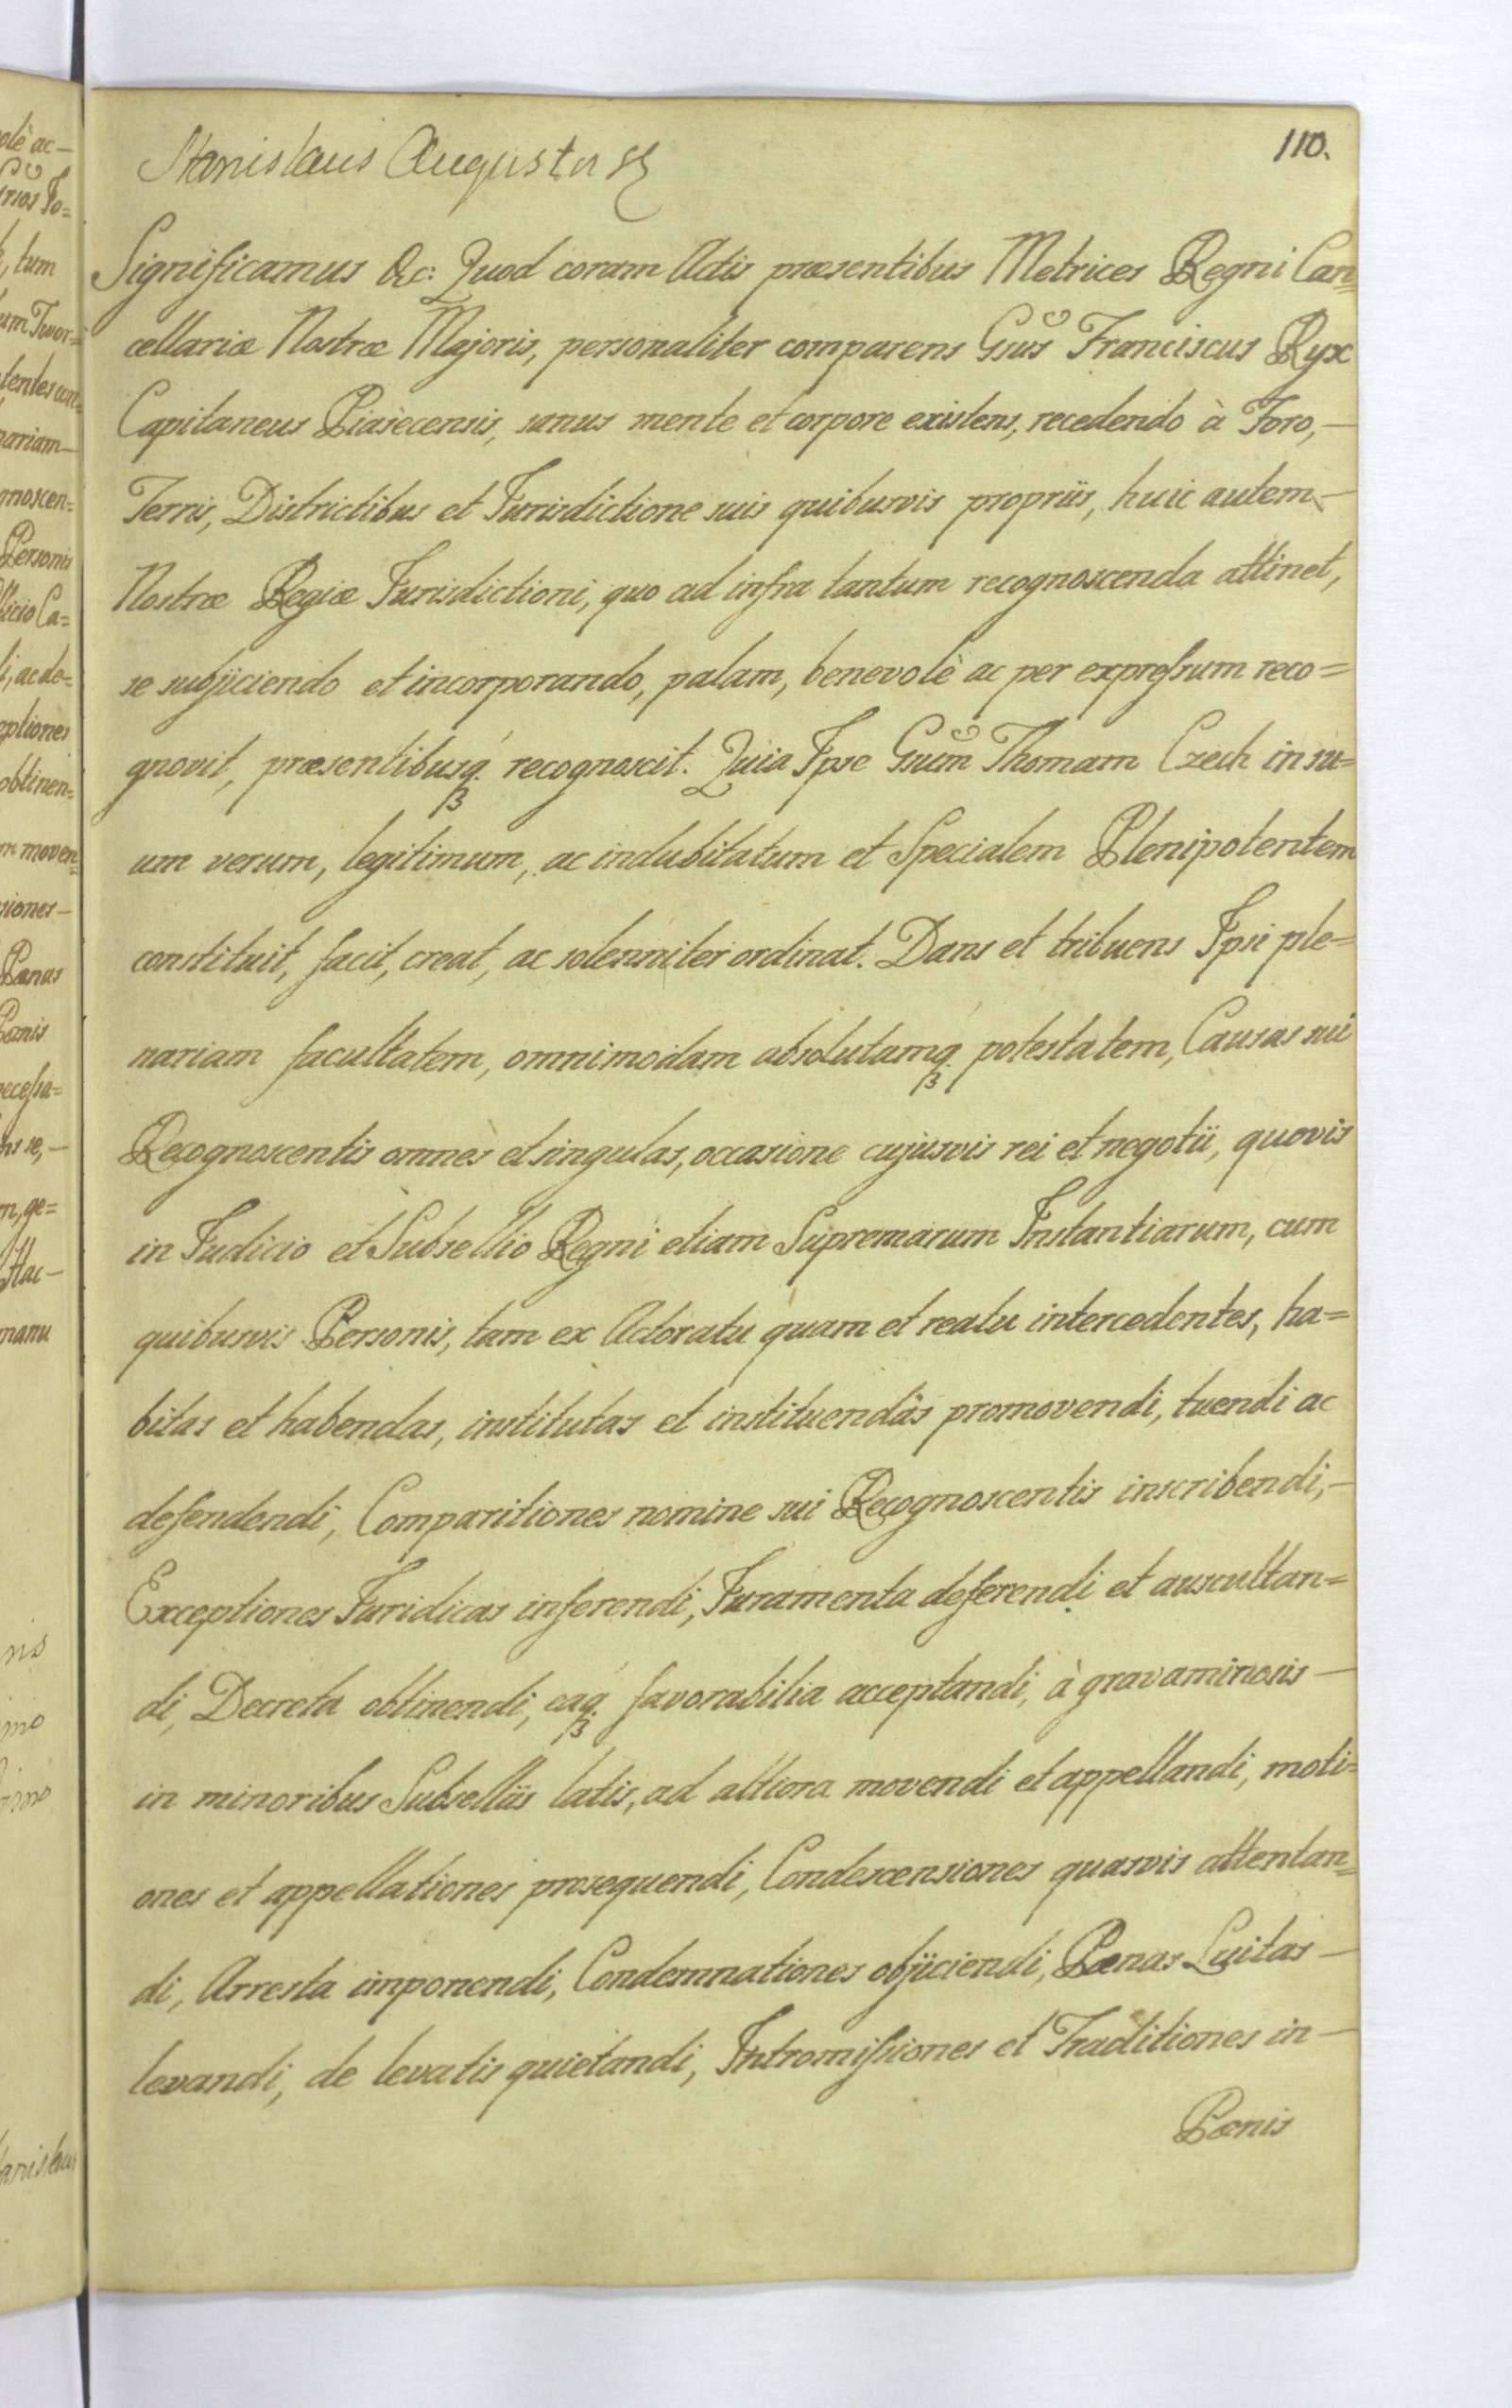 110.
Stanislaus Augustus
Significamus &c: Quod coram Actis præsentibus Metrices Regni Can=
cellariæ Nostræ Majoris, personaliter comparens Gsus Franciscus Ryx
Capitaneus Piasècensis, sanus mente et corpore existens, recedendo à Foro,—
Terris, Districtibus et Jurisdictione suis quibusvis propriis, huic autem—
Nostræ Regiæ Jurisdictioni, quo ad infra tantum recognoscenda attinet,
se subjiciendo et incorporando, palam, benevolè ac per expressum reco=
gnovit, præsentibusq. recognoscit. Quia Ipse Gsum Thomam Czech in su=
um verum, legitimum, ac indubitatum et Specialem Plenipotentem
constituit, facit, creat, ac solenniter ordinat. Dans et tribuens Ipsi ple=
nariam facultatem, omnimodam absolutamq. potestatem, Causas sui
Recognoscentis omnes et singulas, occasione cujusvis rei et negotii, quovis
in Judicio et Subsellio Regni etiam Supremarum Instantiarum, cum
quibusvis Personis, tam ex Actoratu quam et reatu intercedentes, ha=
bitas et habendas, institutas et instituendas promovendi, tuendi ac
defendendi, Comparitiones nomine sui Recognoscentis inscribendi,—
Exceptiones Juridicas inferendi, Juramenta deferendi et auscultan=
di, Decreta obtinendi, eaq. favorabilia acceptandi, à gravaminosis—
in minoribus Subselliis latis, ad altiora movendi et appellandi, moti=
ones et appellationes prosequendi, Condescensiones quasvis attentan=
di, Arresta imponendi, Condemnationes objiciendi, Pænas Luitas—
levandi, de levatis quietandi, Intromissiones et Traditiones in—
Pænis